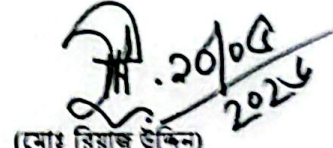 ২০/০৫
২০২৫
(মোঃ রিয়াজ উদ্দিন)